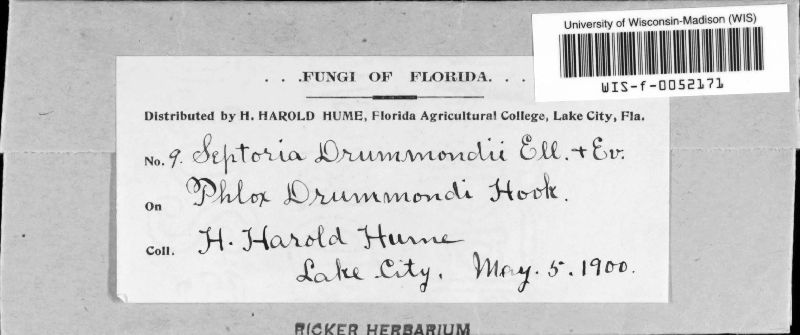 University of Wisconsin-Madison (WIS)
WIS-f-0052171
. . .FUNGI OF FLORIDA. . .
Distributed by H. HAROLD HUME, Florida Agricultural College, Lake City, Fla.
No. 9. Septoria Drummondii Ell. + Ev.
On Phlox Drummondi Hook.
Coll. H. Harold Hume
Lake City, May. 5. 1900.
RICKER HERBARIUM